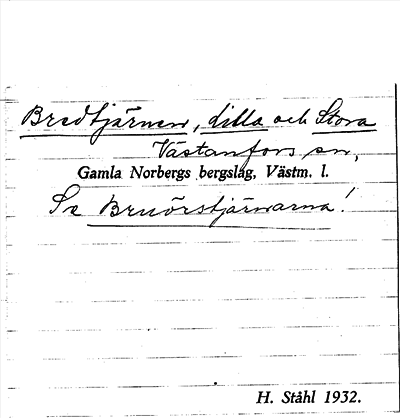 Bredtjärnen, Lilla och Stora
Västanfors sn,
Gamla Norbergs bergslag, Västm. l.
Se Bruörstjärnarna!
H. Ståhl 1932.